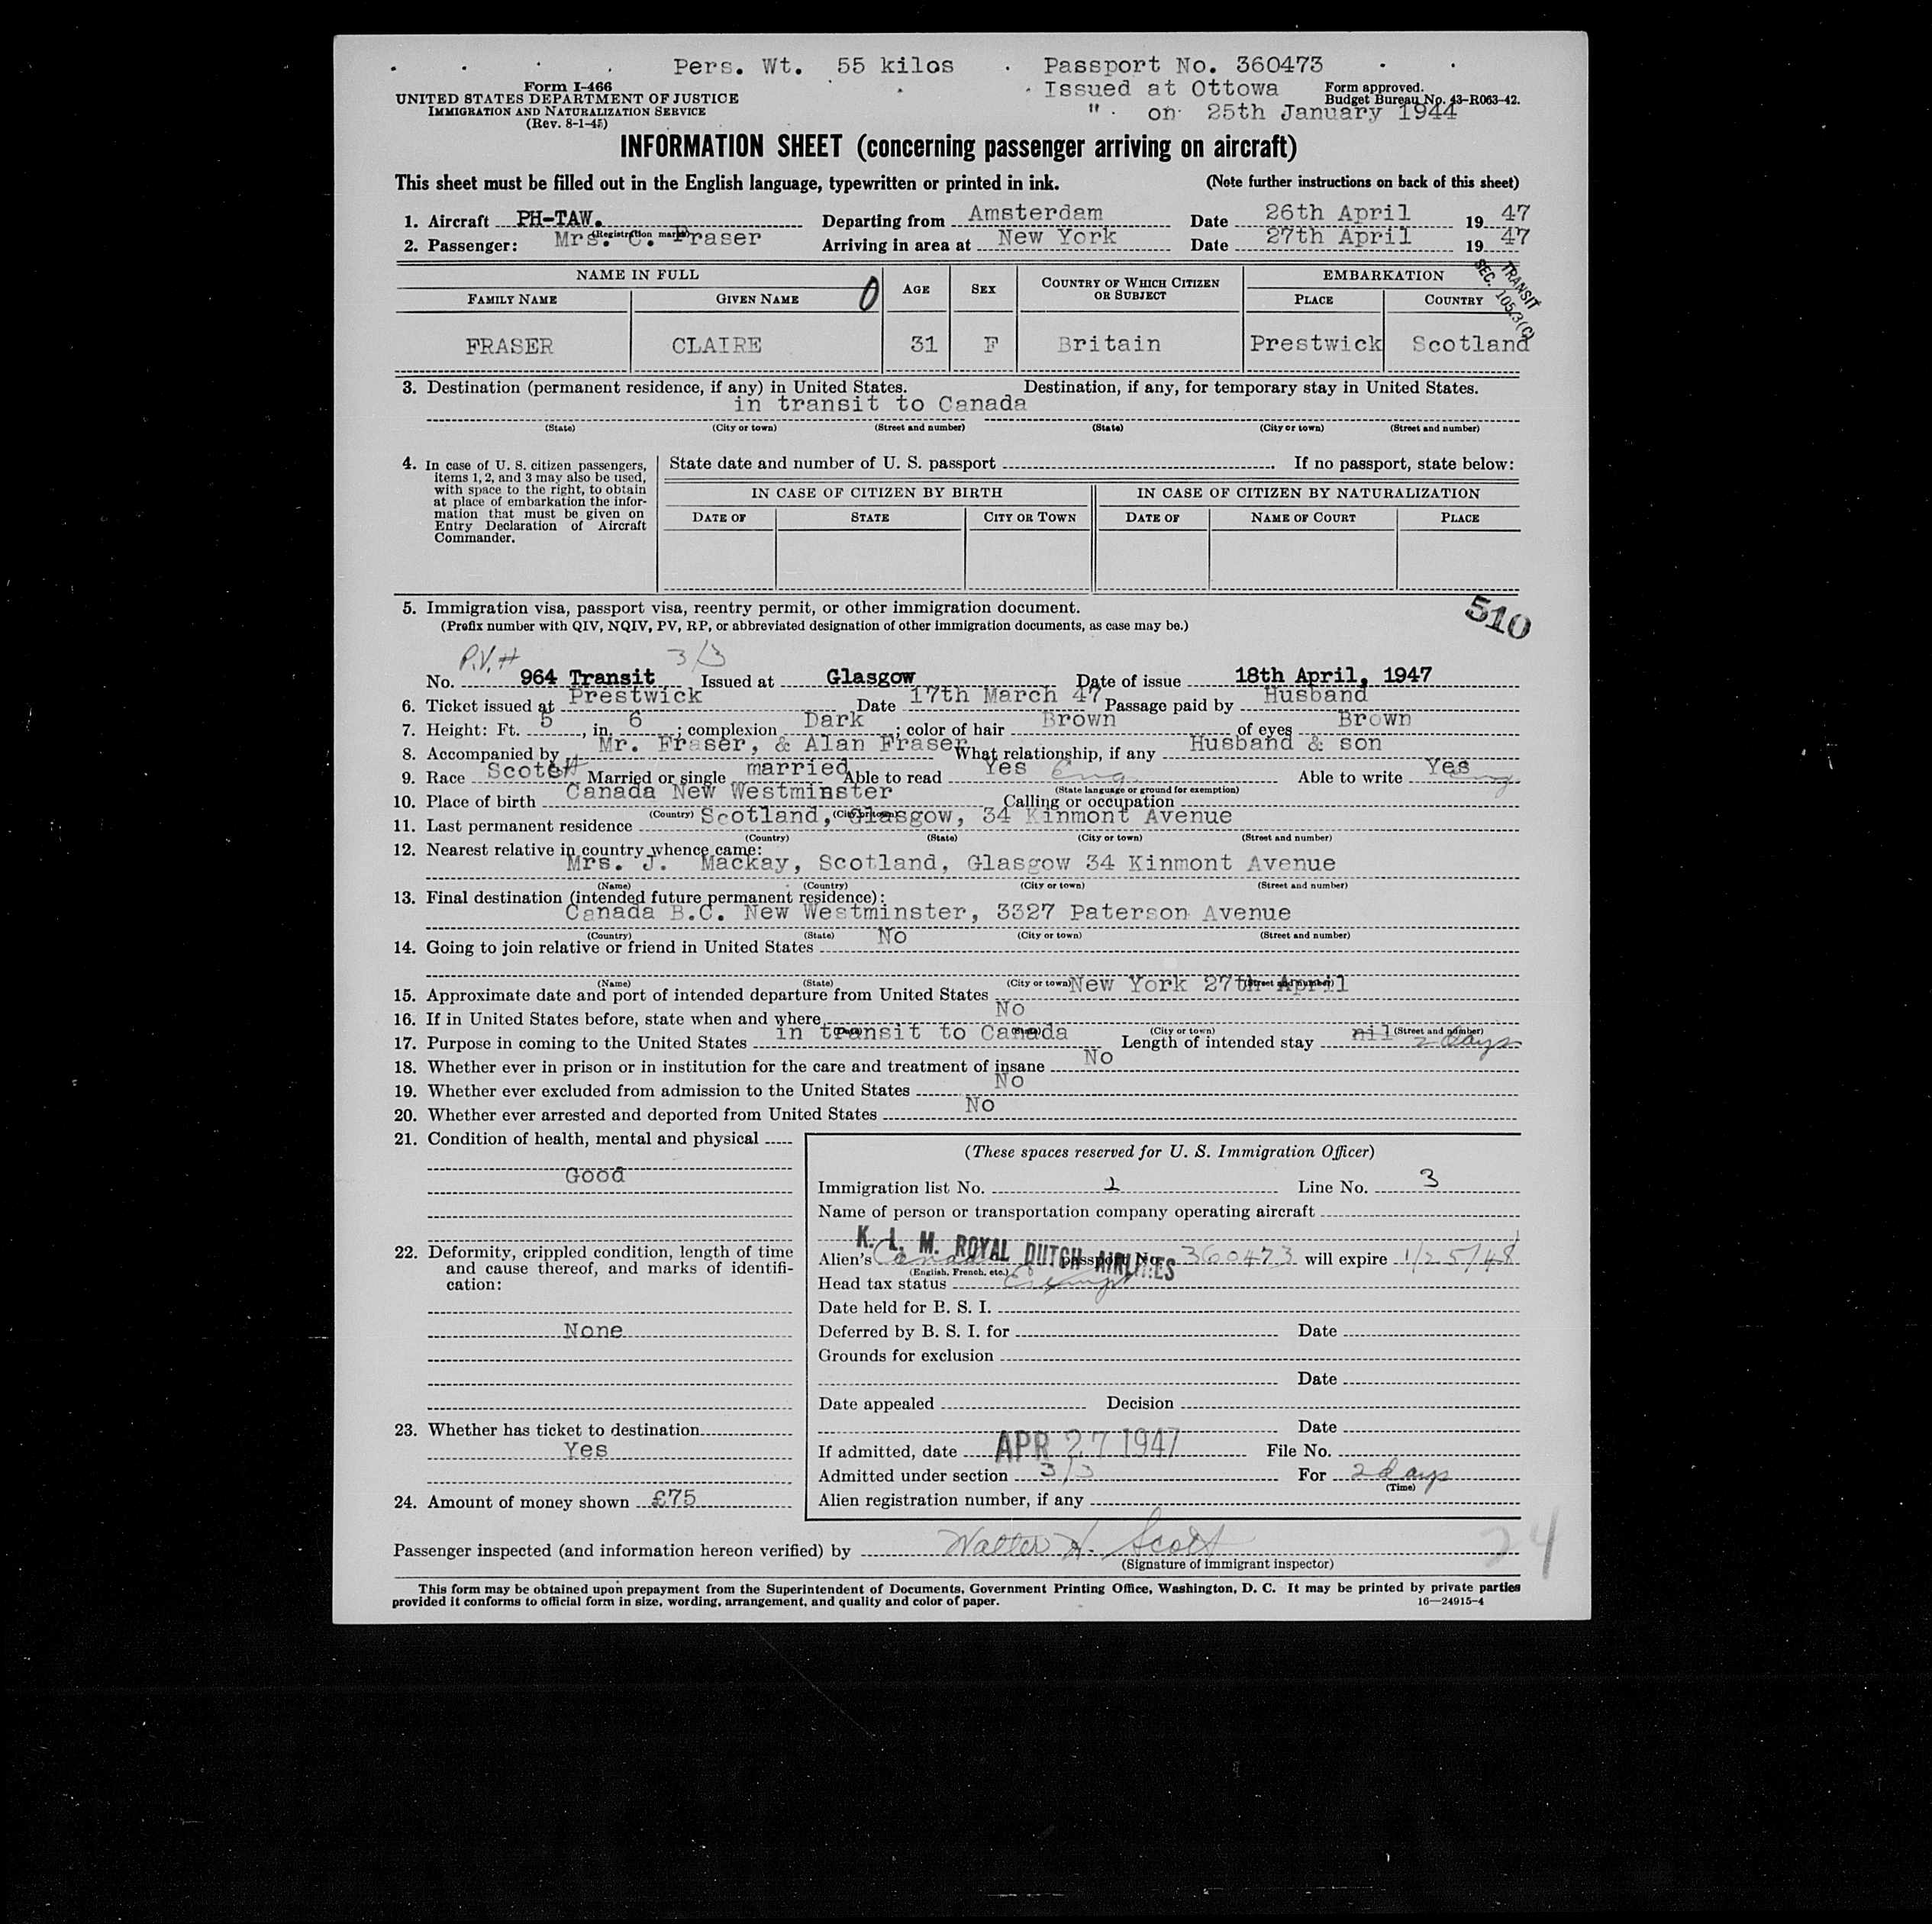 Pers. Wt. 55 kilos Passport No. 360473
Form I-466 Issued at Ottowa Form approved.
UNITED STATES DEPARTMENT OF JUSTICE Budget Bureau No. 43-R063-42.
IMMIGRATION AND NATURALIZATION SERVICE " on 25th January 1944
(Rev. 8-1-45)
INFORMATION SHEET (concerning passenger arriving on aircraft)
This sheet must be filled out in the English language, typewritten or printed in ink. (Note further instructions on back of this sheet)
1. Aircraft PH-TAW. Departing from Amsterdam Date 26th April 19 47
(Registration marks)
2. Passenger: Mrs. C. Fraser Arriving in area at New York Date 27th April 19 47
NAME IN FULL AGE SEX COUNTRY OF WHICH CITIZEN OR SUBJECT EMBARKATION
FAMILY NAME GIVEN NAME 0 PLACE COUNTRY
TRANSIT
SEC. 105/3(C)
FRASER CLAIRE 31 F Britain Prestwick Scotland
3. Destination (permanent residence, if any) in United States. Destination, if any, for temporary stay in United States.
in transit to Canada
(State) (City or town) (Street and number) (State) (City or town) (Street and number)
4. In case of U. S. citizen passengers, items 1, 2, and 3 may also be used, with space to the right, to obtain at place of embarkation the information that must be given on Entry Declaration of Aircraft Commander.
State date and number of U. S. passport . If no passport, state below:
IN CASE OF CITIZEN BY BIRTH IN CASE OF CITIZEN BY NATURALIZATION
DATE OF STATE CITY OR TOWN DATE OF NAME OF COURT PLACE
5. Immigration visa, passport visa, reentry permit, or other immigration document. 510
(Prefix number with QIV, NQIV, PV, RP, or abbreviated designation of other immigration documents, as case may be.)
P.V. # 3/3
No. 964 Transit Issued at Glasgow Date of issue 18th April, 1947
6. Ticket issued at Prestwick Date 17th March 47 Passage paid by Husband
7. Height: Ft. 5, in. 6; complexion Dark; color of hair Brown of eyes Brown
8. Accompanied by Mr. Fraser, & Alan Fraser What relationship, if any Husband & son
9. Race Scotch Married or single married Able to read Yes Eng Able to write Yes
(State language or ground for exemption)
10. Place of birth Canada New Westminster Calling or occupation
(Country) (City or town)
11. Last permanent residence Scotland, Glasgow, 34 Kinmont Avenue
(Country) (State) (City or town) (Street and number)
12. Nearest relative in country whence came:
Mrs. J. Mackay, Scotland, Glasgow 34 Kinmont Avenue
(Name) (Country) (City or town) (Street and number)
13. Final destination (intended future permanent residence):
Canada B.C. New Westminster, 3327 Paterson Avenue
(Country) (State) (City or town) (Street and number)
14. Going to join relative or friend in United States No
(Name) (State) (City or town) (Street and number)
15. Approximate date and port of intended departure from United States New York 27th April
16. If in United States before, state when and where No
(Date) (State) (City or town) (Street and number)
17. Purpose in coming to the United States in transit to Canada Length of intended stay nil 2 days
18. Whether ever in prison or in institution for the care and treatment of insane No
19. Whether ever excluded from admission to the United States No
20. Whether ever arrested and deported from United States No
21. Condition of health, mental and physical
Good
22. Deformity, crippled condition, length of time and cause thereof, and marks of identification:
None
23. Whether has ticket to destination
Yes
24. Amount of money shown £75
(These spaces reserved for U. S. Immigration Officer)
Immigration list No. 1 Line No. 3
Name of person or transportation company operating aircraft
K. L. M. ROYAL DUTCH AIRLINES
Alien's Canad passport No. 360473 will expire 1/25/48
(English, French, etc.)
Head tax status Exempt
Date held for B. S. I.
Deferred by B. S. I. for Date
Grounds for exclusion
Date
Date appealed Decision
Date
If admitted, date APR 27 1947 File No.
Admitted under section 3/3 For 2 days
(Time)
Alien registration number, if any
Passenger inspected (and information hereon verified) by Walter H. Scott 24
(Signature of immigrant inspector)
This form may be obtained upon prepayment from the Superintendent of Documents, Government Printing Office, Washington, D. C. It may be printed by private parties
provided it conforms to official form in size, wording, arrangement, and quality and color of paper. 16—24915-4